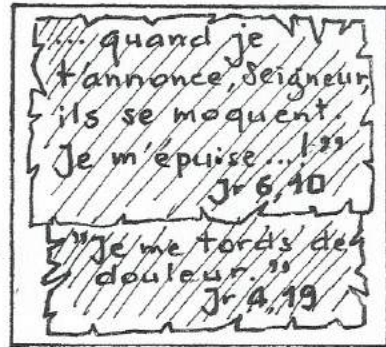 ... quand je
t'annonce, Seigneur,
ils se moquent.
Je m'épuise ...!"
Jr 6,10
"Je me tords de
douleur."
Jr 4,19